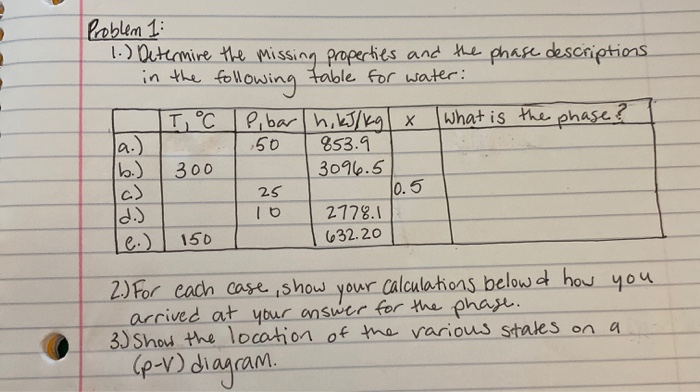 Problem 1:
1.) Determine the missing properties and the phase descriptions
in the following table for water:
T, °C P, bar h, kJ/kg x What is the phase?
a.) 50 853.9
b.) 300 3096.5
c.) 25 0.5
d.) 10 2778.1
e.) 150 632.20
2.) For each case, show your calculations below & how you
arrived at your answer for the phase.
3.) Show the location of the various states on a
(p-v) diagram.